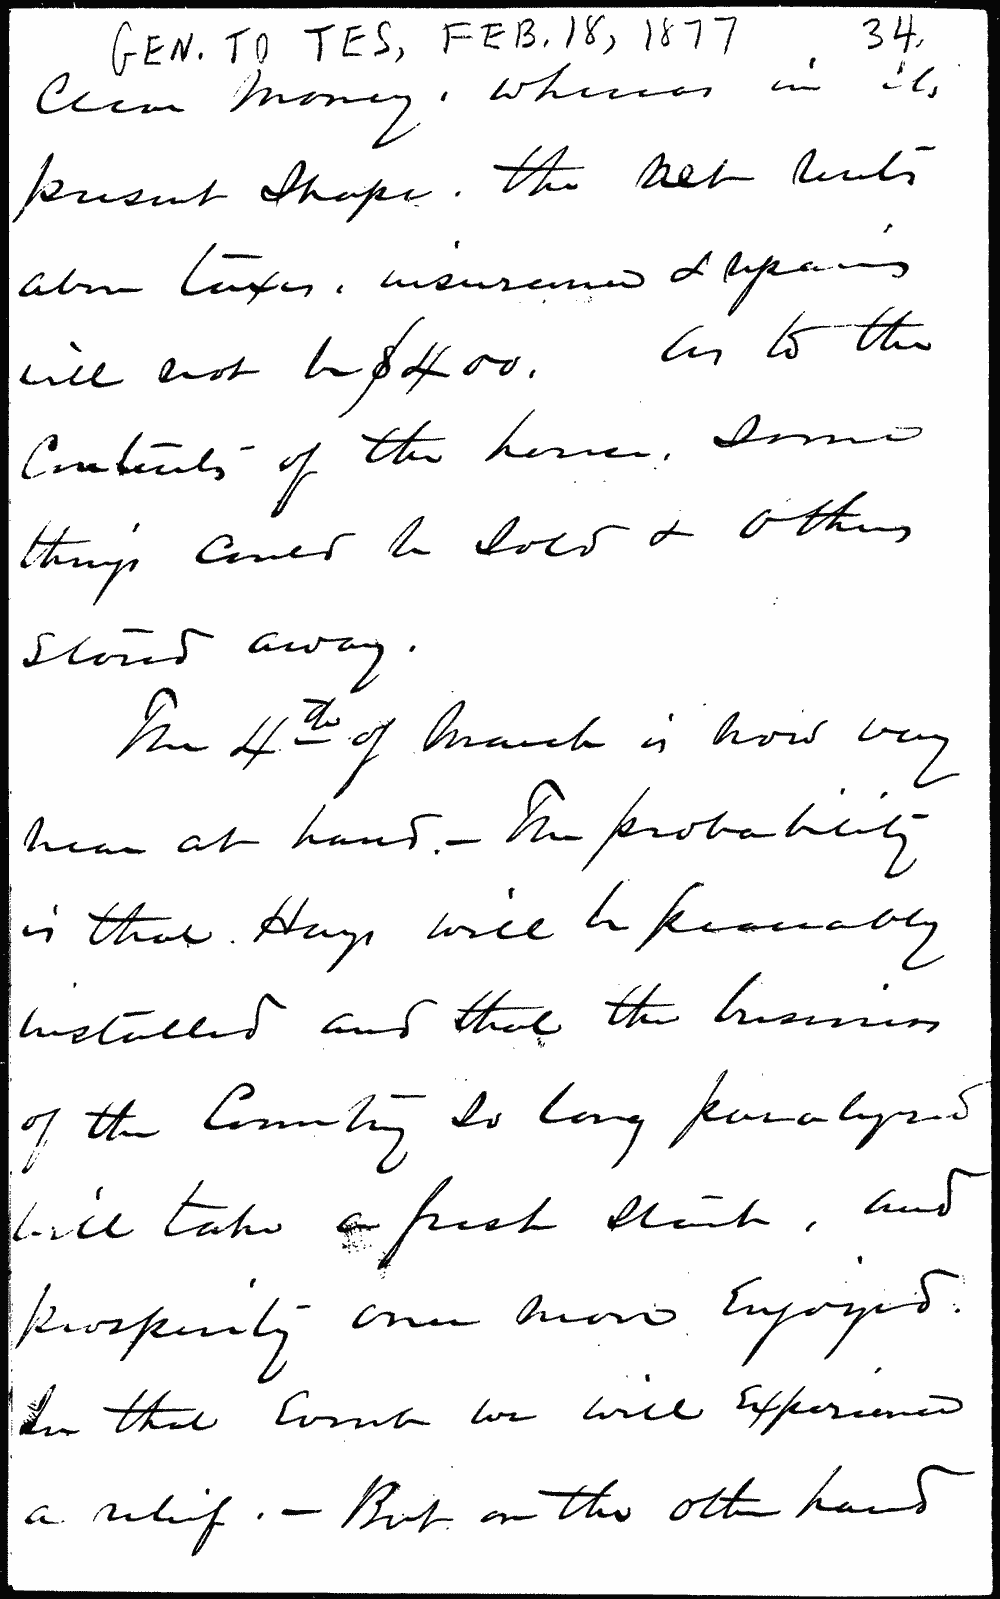 GEN. TO TES, FEB. 18, 1877 34.
Clear Money, whereas in its
present shape. the net rents
above taxes, insurance & repairs
will not be $400. As to the
Contents of the house, some
things could be sold & others
stored away.
The 4th of March is now very
near at hand. - The probability
is that Hays will be peaceably
installed and that the business
of the Country so long paralyzed
will take a fresh start, and
prosperity once more Enjoyed.
In that Event we will Experience
a relief. - But on the other hand